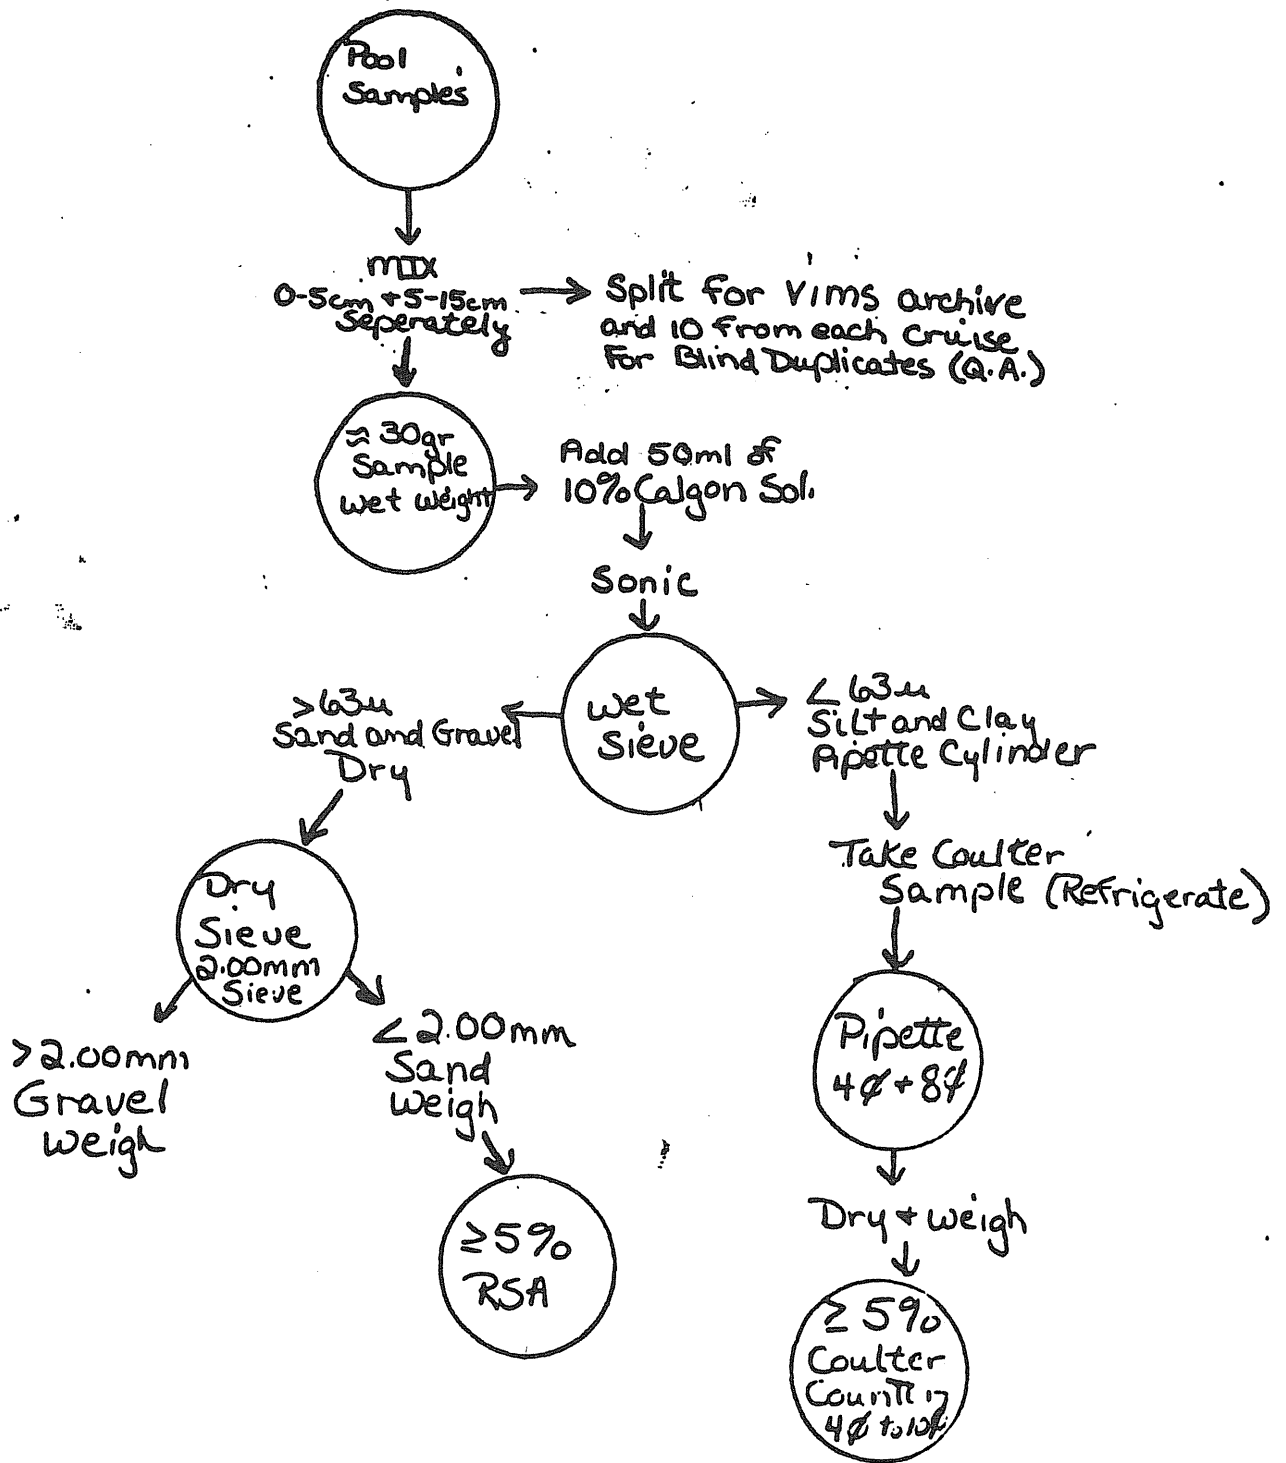 Pool
Samples
MIX
0-5cm + 5-15cm
Seperately
Split for Vims archive
and 10 from each cruise
For Blind Duplicates (Q.A.)
≈ 30gr
Sample
wet weight
Add 50ml of
10% Calgon Sol.
Sonic
wet
Sieve
>63µ
Sand and Gravel
Dry
< 63µ
Silt and Clay
Pipette Cylinder
Take Coulter
Sample (Refrigerate)
Dry
Sieve
2.00mm
Sieve
>2.00mm
Gravel
Weigh
<2.00mm
Sand
Weigh
≥5%
RSA
Pipette
4ϕ + 8ϕ
Dry + weigh
≥ 5%
Coulter
Counting
4ϕ to 10ϕ